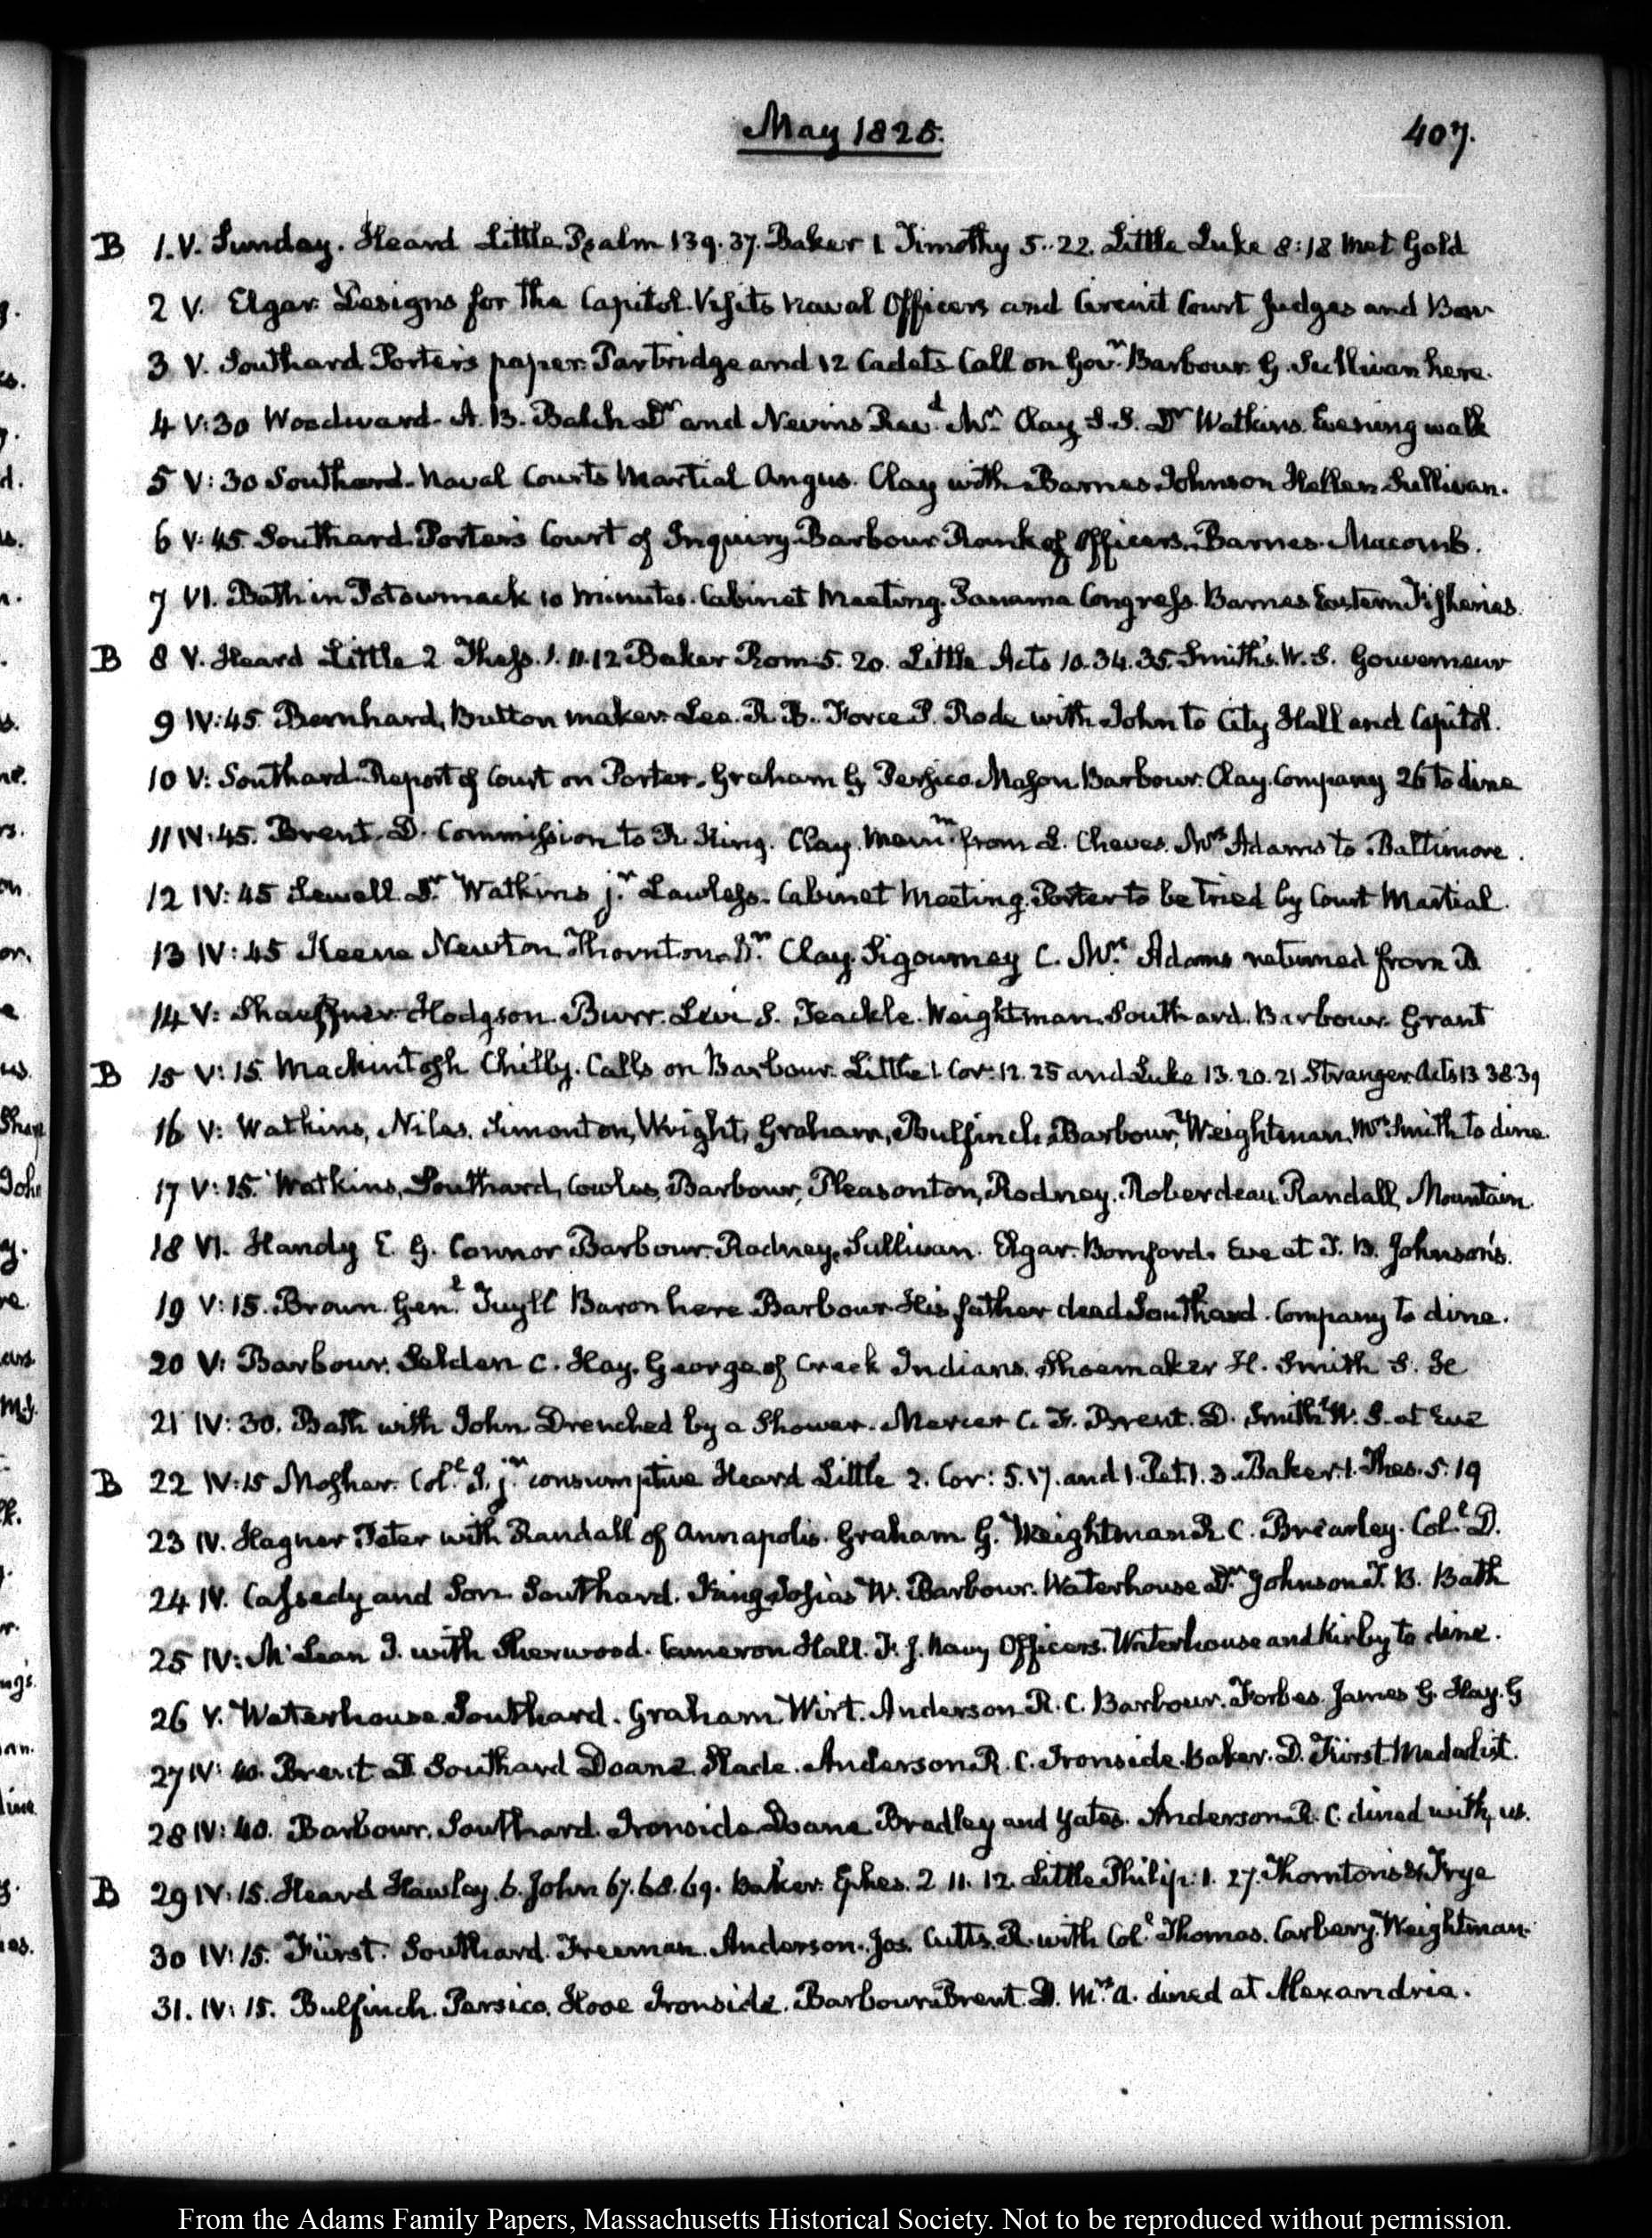 May 1825.
407.
B 1. V. Sunday. Heard Little Psalm 139. 37. Baker 1 Timothy 5. 22. Little Luke 8:18 Met Gold
2 V. Elgar. Designs for the Capitol. Visits Naval Officers and Circuit Court Judges and Bar
3 V. Southard. Porter's paper. Partridge and 12 Cadets. Call on Govr. Barbour. G. Sullivan here.
4 V:30 Woodward. A. B. Balch Dr and Nevins Revd. Mr. Clay. S.S. Dr Watkins. Evening walk
5 V:30 Southard. Naval Courts Martial Angus. Clay with Barnes Johnson Hellen Sullivan.
6 V:45 Southard. Porter's Court of Inquiry. Barbour. Rank of Officers. Barnes. Macomb.
7 VI. Bath in Potowmack 10 minutes. Cabinet Meeting. Panama Congress. Barnes Eastern Fisheries.
B 8 V. Heard Little 2. Thess. 1. 11. 12 Baker Rom: 5. 20. Little Acts 10. 34. 35. Smith's. W. S. Gouverneur
9 IV:45. Bernhard, Button maker. Lee. R. B. Force P. Rode with John to City Hall and Capitol.
10 V: Southard. Report of Court on Porter. Graham G. Persico Mason. Barbour. Clay. Company 26 to dine
11 IV:45. Brent. D. Commission to R. King. Clay. from L. Cheves. Mrs Adams to Baltimore.
12 IV:45 Sewell. Dr. Watkins jr. Lawless. Cabinet Meeting. Porter to be tried by Court Martial.
13 IV:45 Keene Newton. Thornton. Dr. Clay. Sigourney C. Mrs. Adams returned from B
14 V: Shaeffner. Hodgson. Burr. Levi S. Teackle. Weightman. Southard. Barbour. Grant
B 15 V:15. Mackintosh Chilly. Calls on Barbour. Little 1 Cor: 12. 25 and Luke 13. 20. 21. Stranger. Acts 13 38.39
16 V: Watkins, Niles. Simonton, Wright, Graham, Bulfinch, Barbour, Weightman. Mrs Smith to dine.
17 V:15. Watkins, Southard, Cowles, Barbour, Pleasonton, Rodney. Roberdeau. Randall, Mountain.
18 VI. Handy E. G. Connor Barbour. Rodney. Sullivan. Elgar. Bomford. Eve at T. B. Johnson's.
19 V:15. Brown. Genl. Tuyll Baron here Barbour. His father dead Southard. Company to dine.
20 V: Barbour. Selden C. Hay. George of Creek Indians. Shoemaker H. Smith S. H
21 IV:30. Bath with John Drenched by a Shower. Mercer C. F. Brent. D. Smith W. S. at Eve
B 22 IV:15 Mosher. Coll. J. jr. consumptive Heard Little 2. Cor: 5. 17. and 1. Pet. 1. 3. Baker. 1. Thes. 5. 19
23 IV. Hagner Peter with Randall of Annapolis. Graham G. Weightman R. C. Brearley. Coll. D.
24 IV. Cassedy and Son Southard. King Josias W. Barbour. Waterhouse Dr. Johnson T. B. Bath
25 IV: McLean J. with Sherwood. Cameron Hall. F. J. Navy Officers. Waterhouse and Kirby to dine.
26 V. Waterhouse. Southard. Graham. Wirt. Anderson R. C. Barbour. Forbes. James G. Hay. G
27 IV:40. Brent D Southard Doane Slade. Anderson R. C. Ironside. Baker. D. Fürst. Medalist.
28 IV:40. Barbour. Southard. Ironside Doane Bradley and Yates. Anderson R. C. dined with us.
B 29 IV:15. Heard Hawley. 6. John 67. 68. 69. Baker. Ephes. 2 11. 12. Little Philip: 1. 27. Thornton's & Frye
30 IV:15. Fürst. Southard. Freeman. Anderson. Jos. Cutts. R. with Coll. Thomas. Carbery. Weightman.
31. IV:15. Bulfinch. Persico. Hove Ironside. Barbour. Brent. D. Mrs. A. dined at Alexandria.
From the Adams Family Papers, Massachusetts Historical Society. Not to be reproduced without permission.